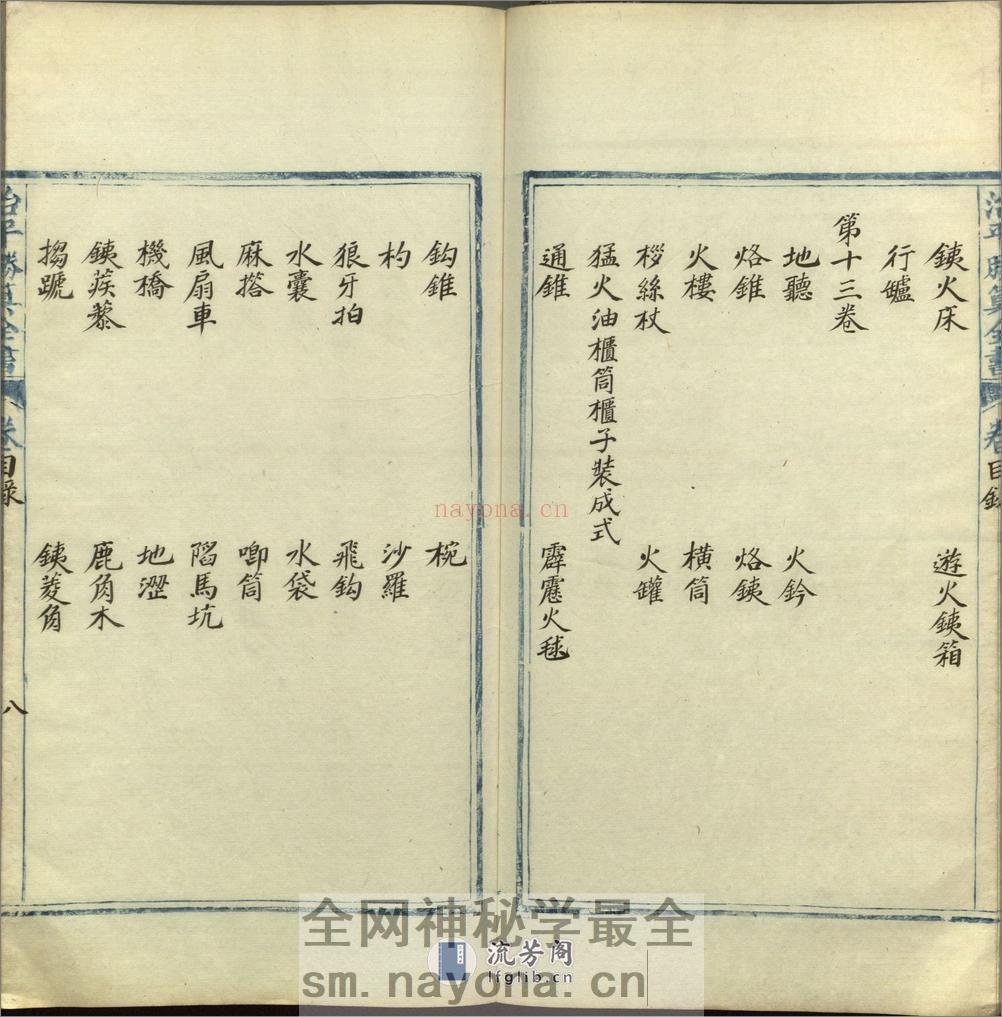 鐵火床 遊火鐵箱
行鑪
第十三卷
地聽 火鈐
烙錐 烙鐵
火樓 橫筒
桚絲杖 火罐
猛火油櫃筒櫃子裝成式
通錐 霹靂火毬
治平勝算全書 卷 目錄
鈎錐 椀
杓 沙羅
狼牙拍 飛鈎
水囊 水袋
麻搭 唧筒
風扇車 陷馬坑
機橋 地澀
鐵蒺藜 鹿角木
搊蹏 鐵菱角
治平勝算全書 卷 目錄 八
nayona.cn
全网神秘学最全
流芳阁
lfglib.cn
sm.nayona.cn